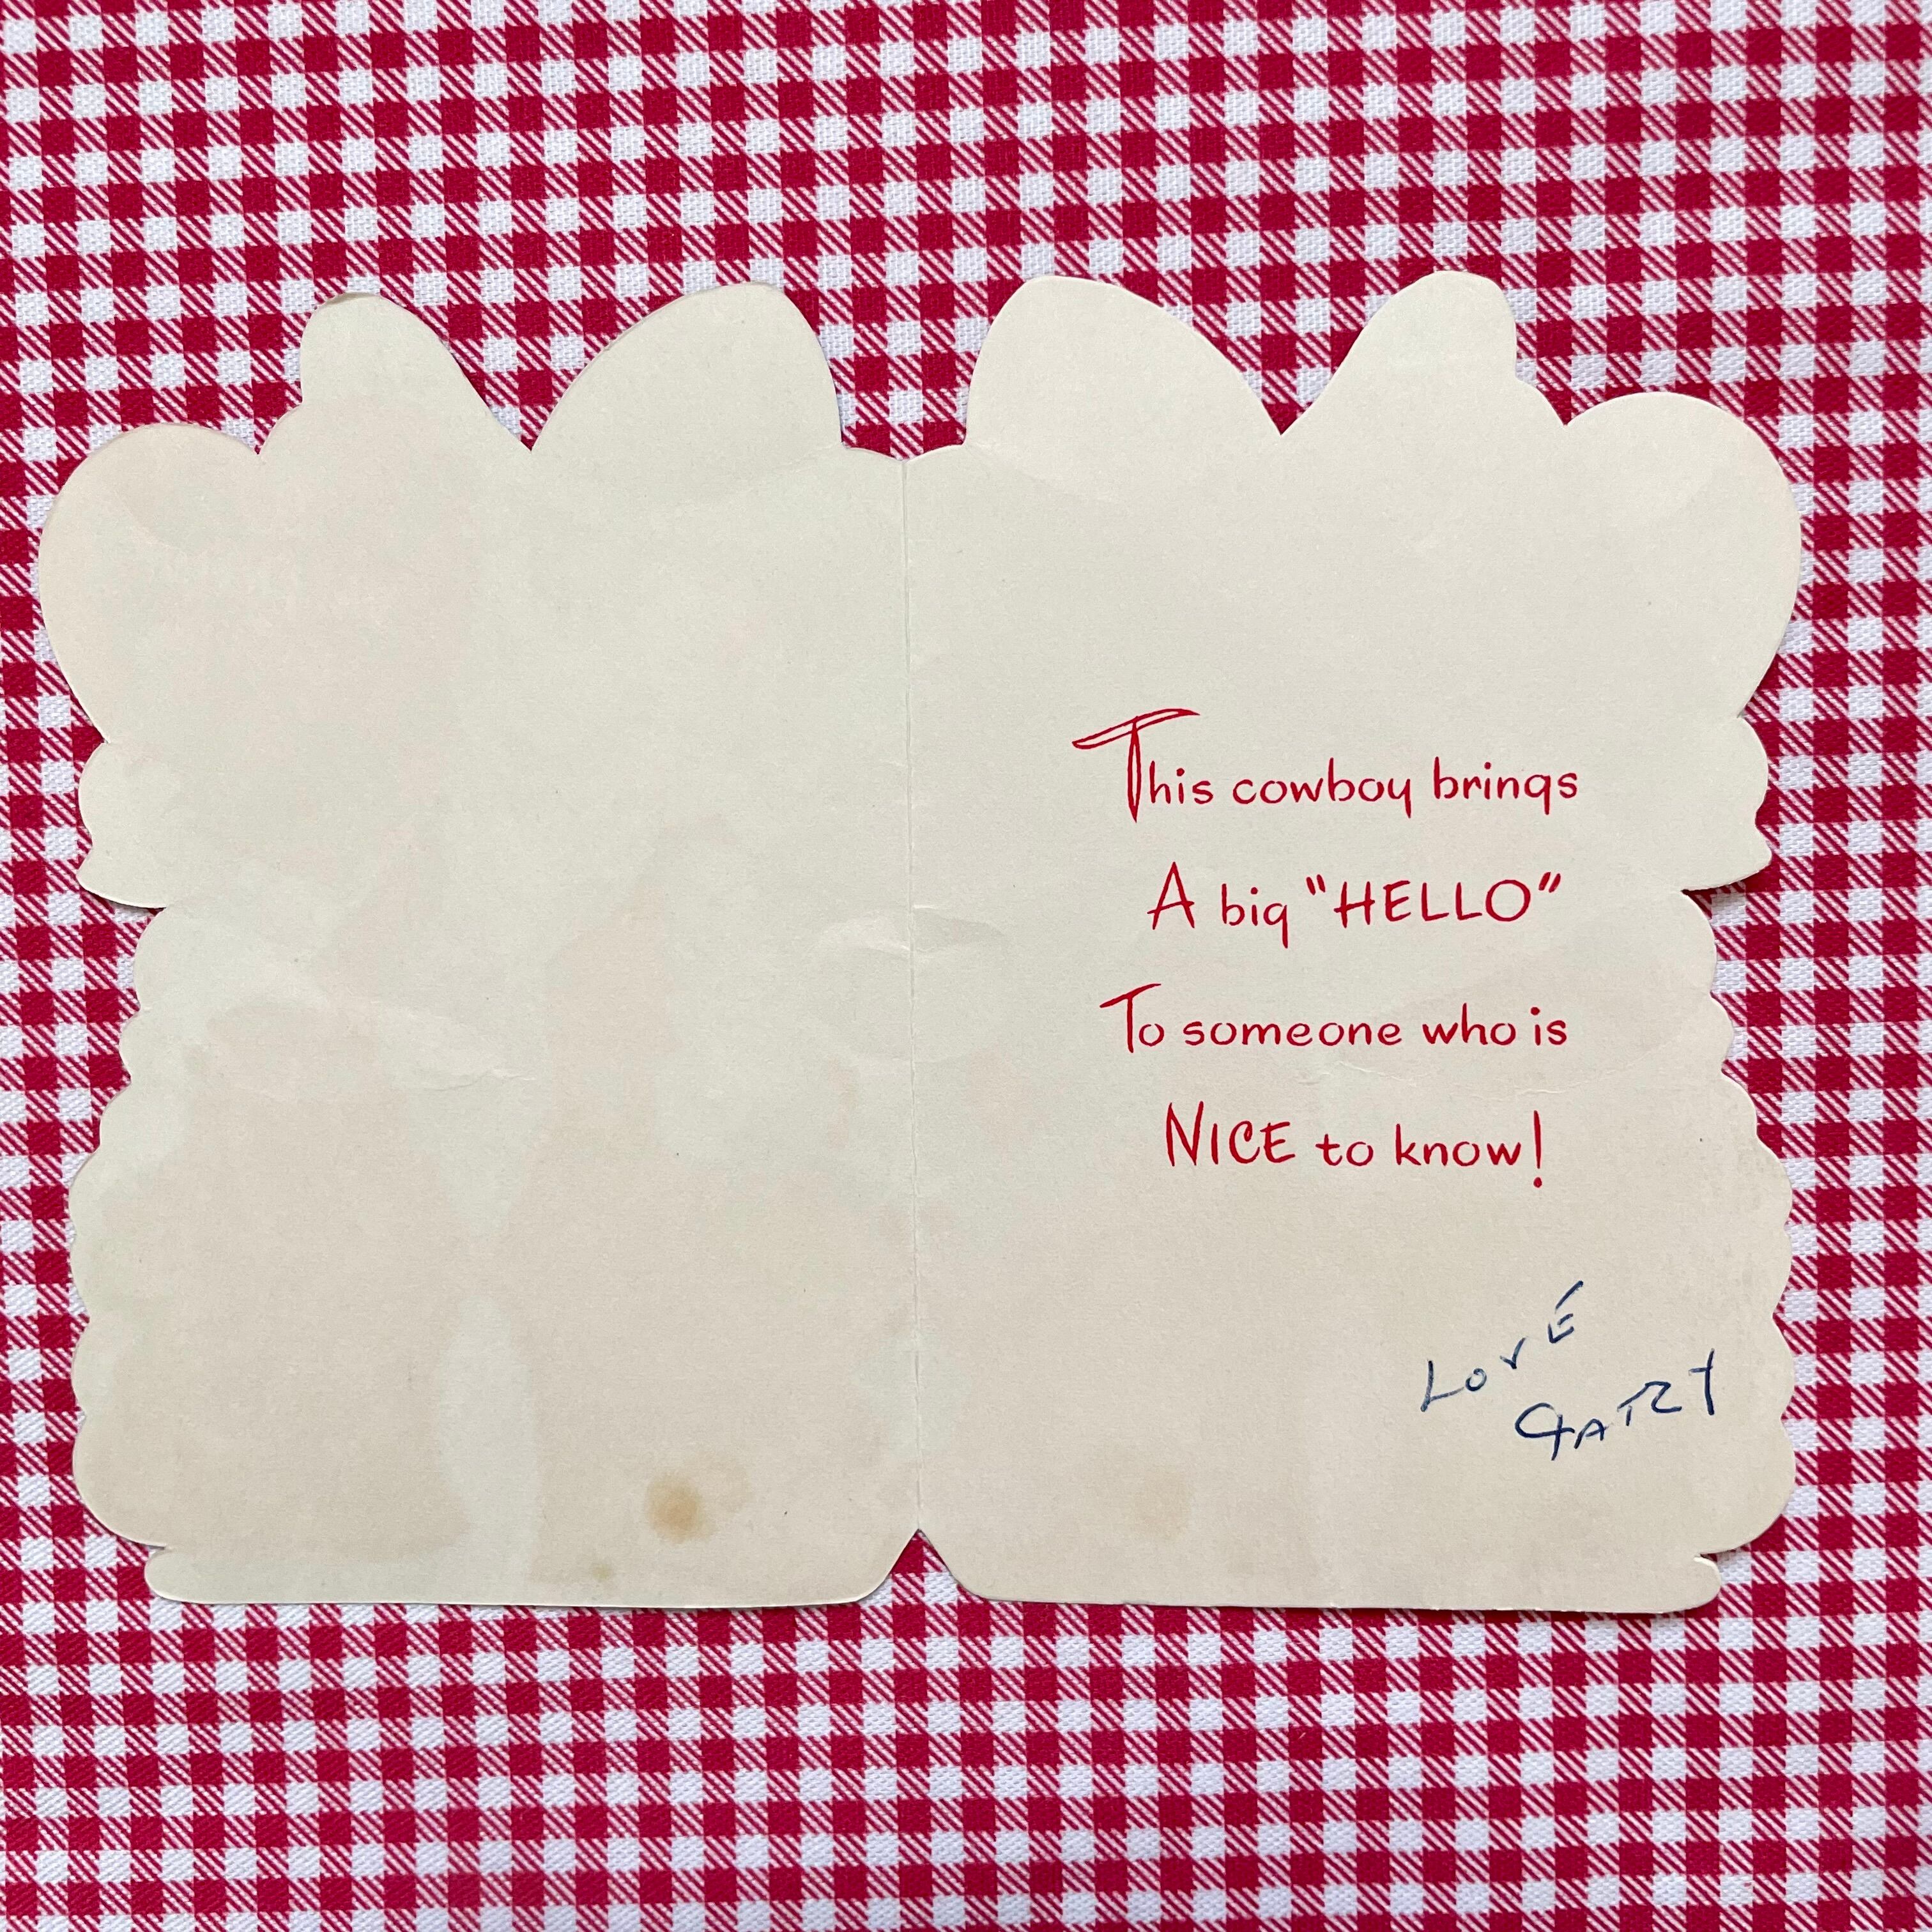 This cowboy brings
A big "HELLO"
To someone who is
NICE to know!
LOVE
GARY